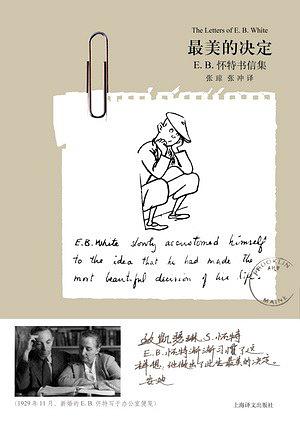 The Letters of E. B. White
最美的决定
E. B. 怀特书信集
张琼 张冲 译
E.B. White slowly accustomed himself
to the idea that he had made the
most beautiful decision of his life.
BROOKLIN
MAINE
致凯瑟琳.S.怀特
E.B.怀特渐渐习惯了这
样想，他做出了此生最美的决定。
安迪
(1929 年 11 月，新婚的 E. B. 怀特写于办公室便笺)
上海译文出版社